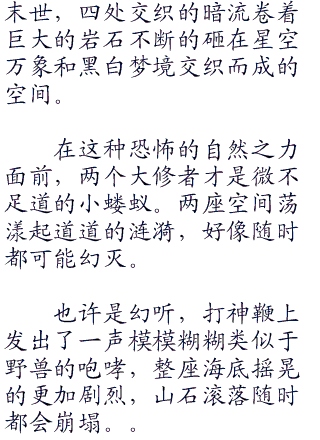 末世，四处交织的暗流卷着
巨大的岩石不断的砸在星空
万象和黑白梦境交织而成的
空间。
在这种恐怖的自然之力
面前，两个大修者才是微不
足道的小蝼蚁。两座空间荡
漾起道道的涟漪，好像随时
都可能幻灭。
也许是幻听，打神鞭上
发出了一声模模糊糊类似于
野兽的咆哮，整座海底摇晃
的更加剧烈，山石滚落随时
都会崩塌。。